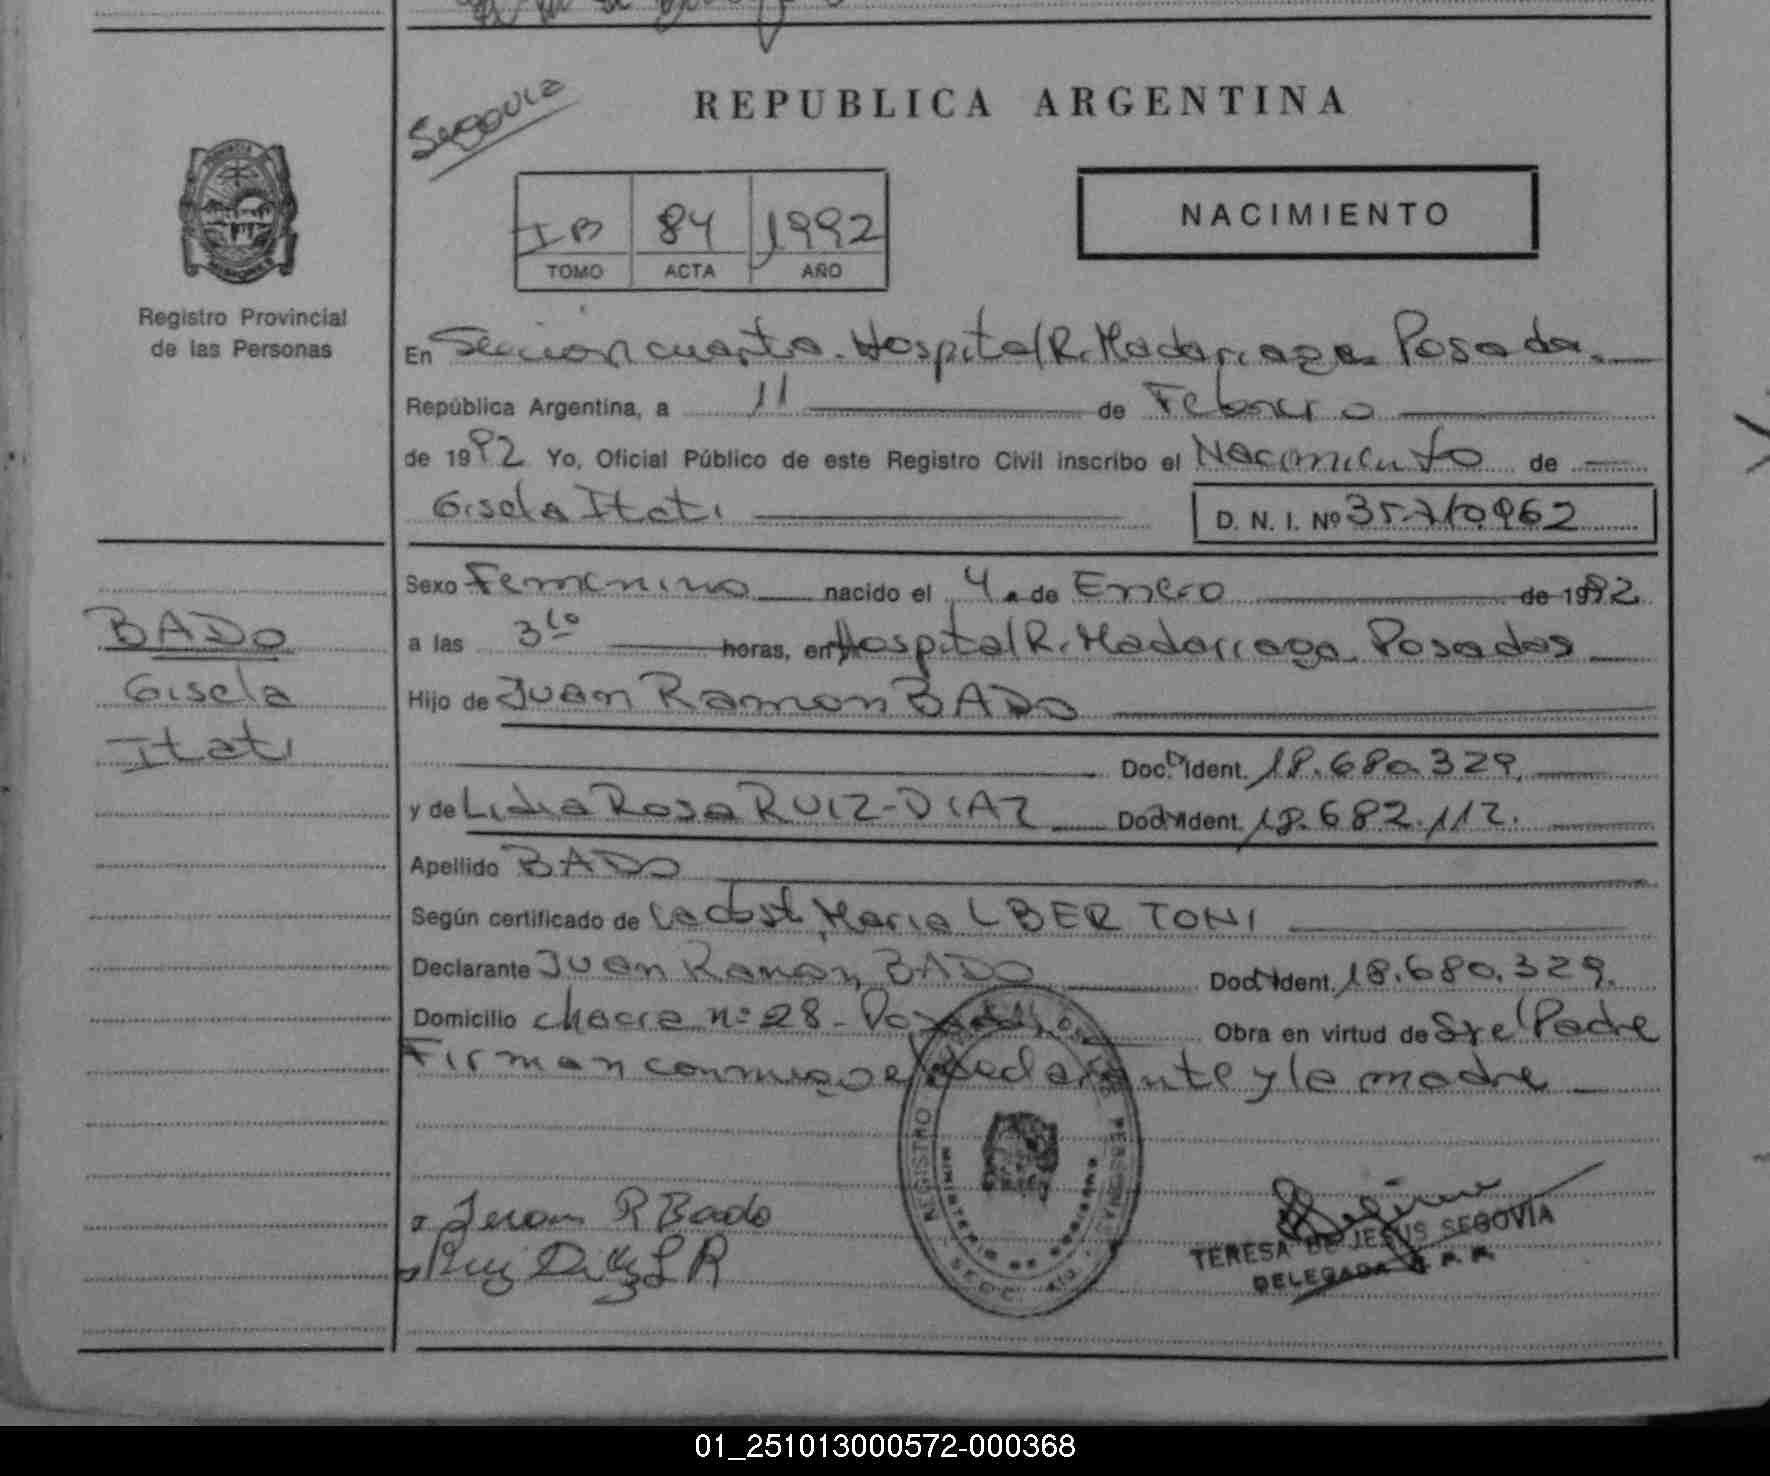 REPUBLICA ARGENTINA
Segovia
NACIMIENTO
IB 84 1992
TOMO ACTA AÑO
Registro Provincial
de las Personas
En Sección cuarta. Hospital R. Madariaga Posadas.
República Argentina, a 11 de Febrero
de 1992 Yo, Oficial Público de este Registro Civil inscribo el Nacimiento de
Gisela Itati D. N. I. Nº 35.710.962
Sexo Femenino nacido el 4 de Enero de 1992
a las 3 10 horas, en Hospital R. Madariaga Posadas
Hijo de Juan Ramon BADO
Doc. Ident. 18.680.329.
y de Lidia Rosa RUIZ-DIAZ Doc. Ident. 18.682.112.
Apellido BADO
Según certificado de la obst. Maria L BERTONI
Declarante Juan Ramon BADO Doc. Ident. 18.680.329.
Domicilio chacra nº 28 - Posadas Obra en virtud de Ser el Padre
Firman conmigo el declarante y la madre
BADO
Gisela
Itati
Juan R Bado
Ruiz Diaz L R
REGISTRO DE LAS PERSONAS
MINISTERIO DE GOBIERNO
TERESA DE JESUS SEGOVIA
DELEGADA R. P. P.
01_251013000572-000368